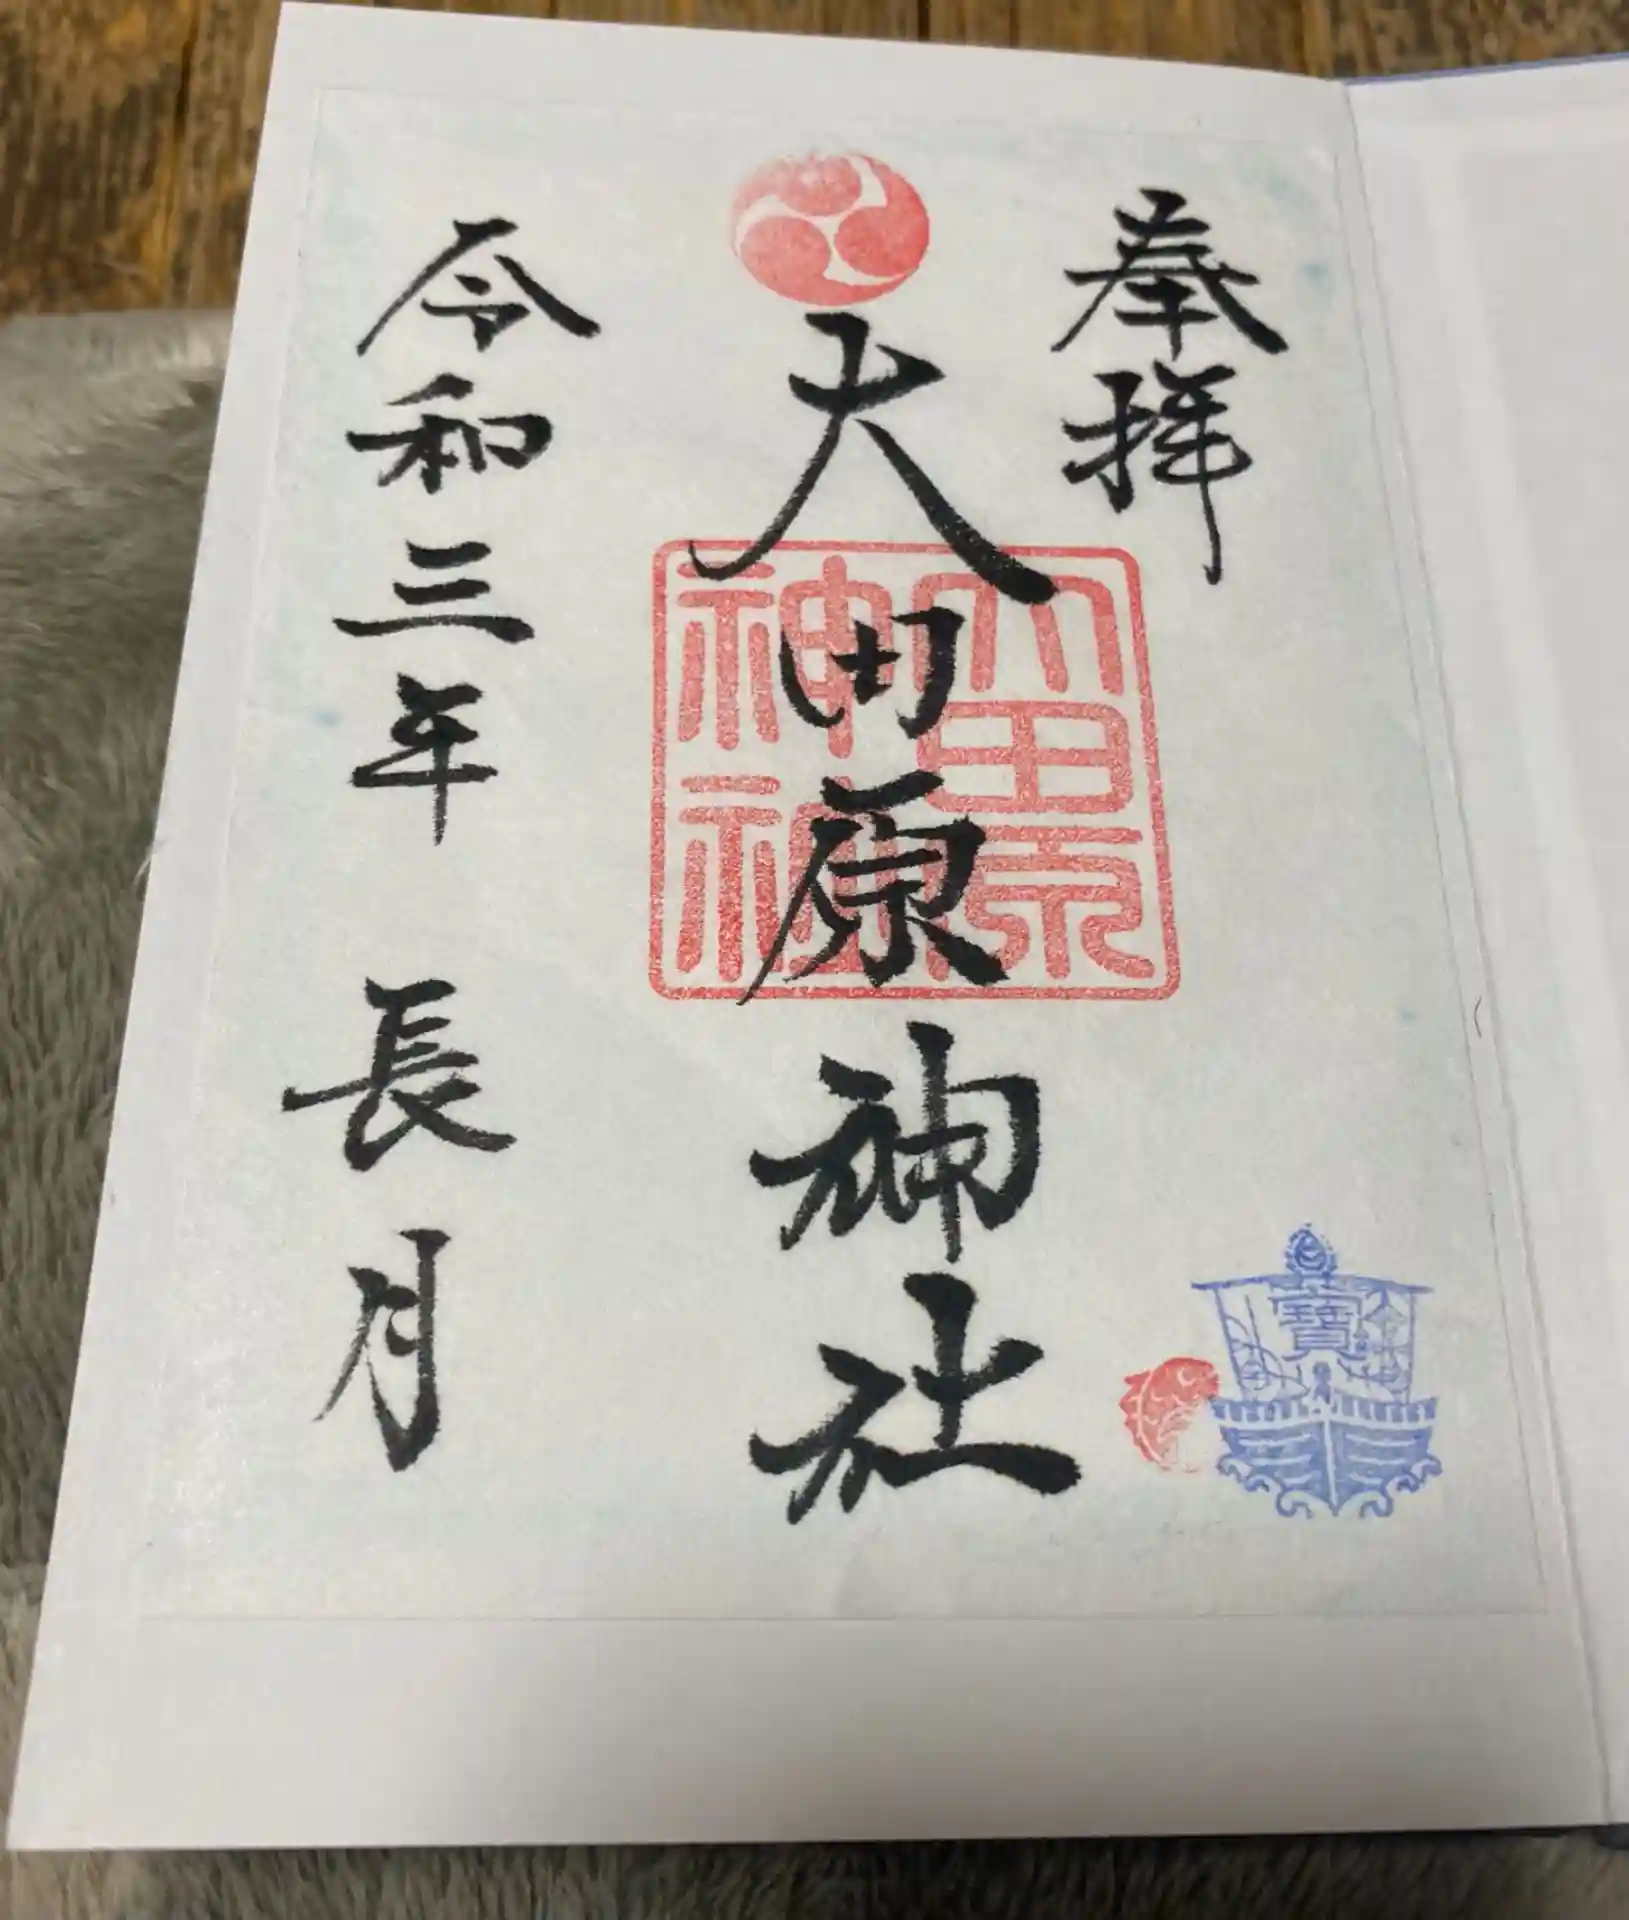 奉拝
大田原神社
令和三年 長月
大田原
神社
寳